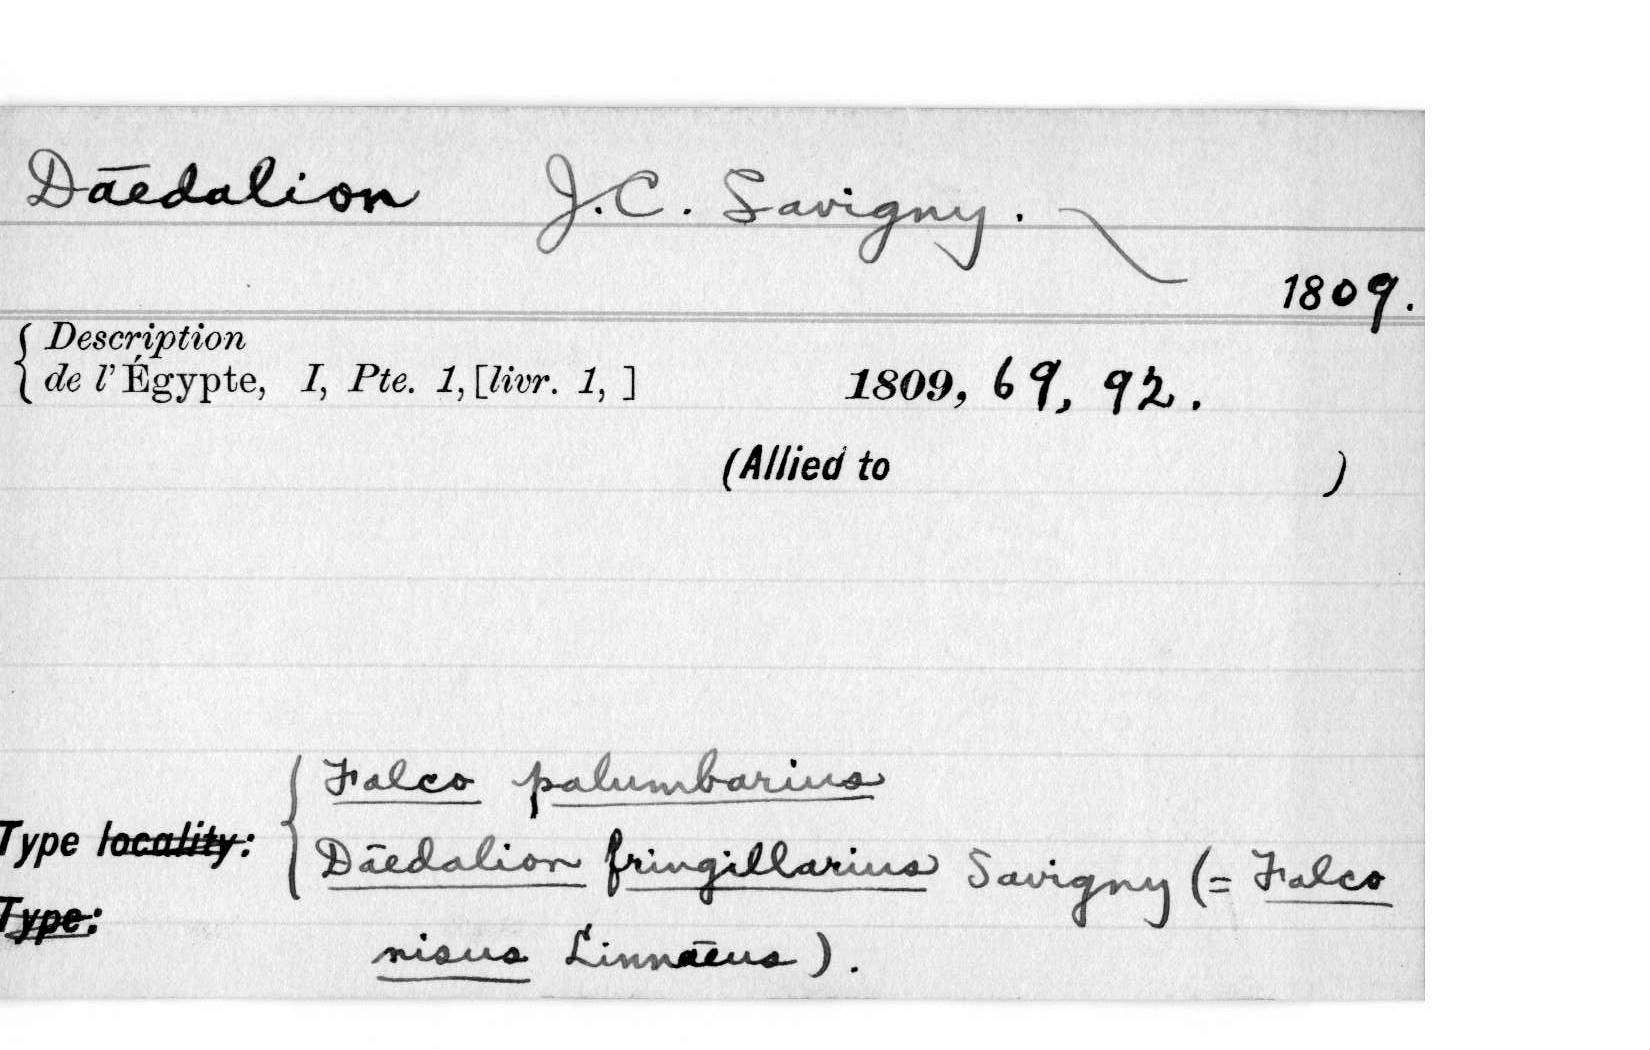 Dāedalion J.C. Savigny.
1809.
{ Description
de l'Égypte, I, Pte. 1, [livr. 1, ] 1809, 69, 92.
(Allied to )
Falco palumbarius
Type locality: { Dāedalion fringillarius Savigny (= Falco
Type:
nisus Linnāeus).